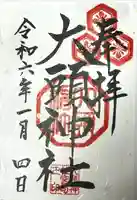 奉拝
大頭神社
令和六年一月四日